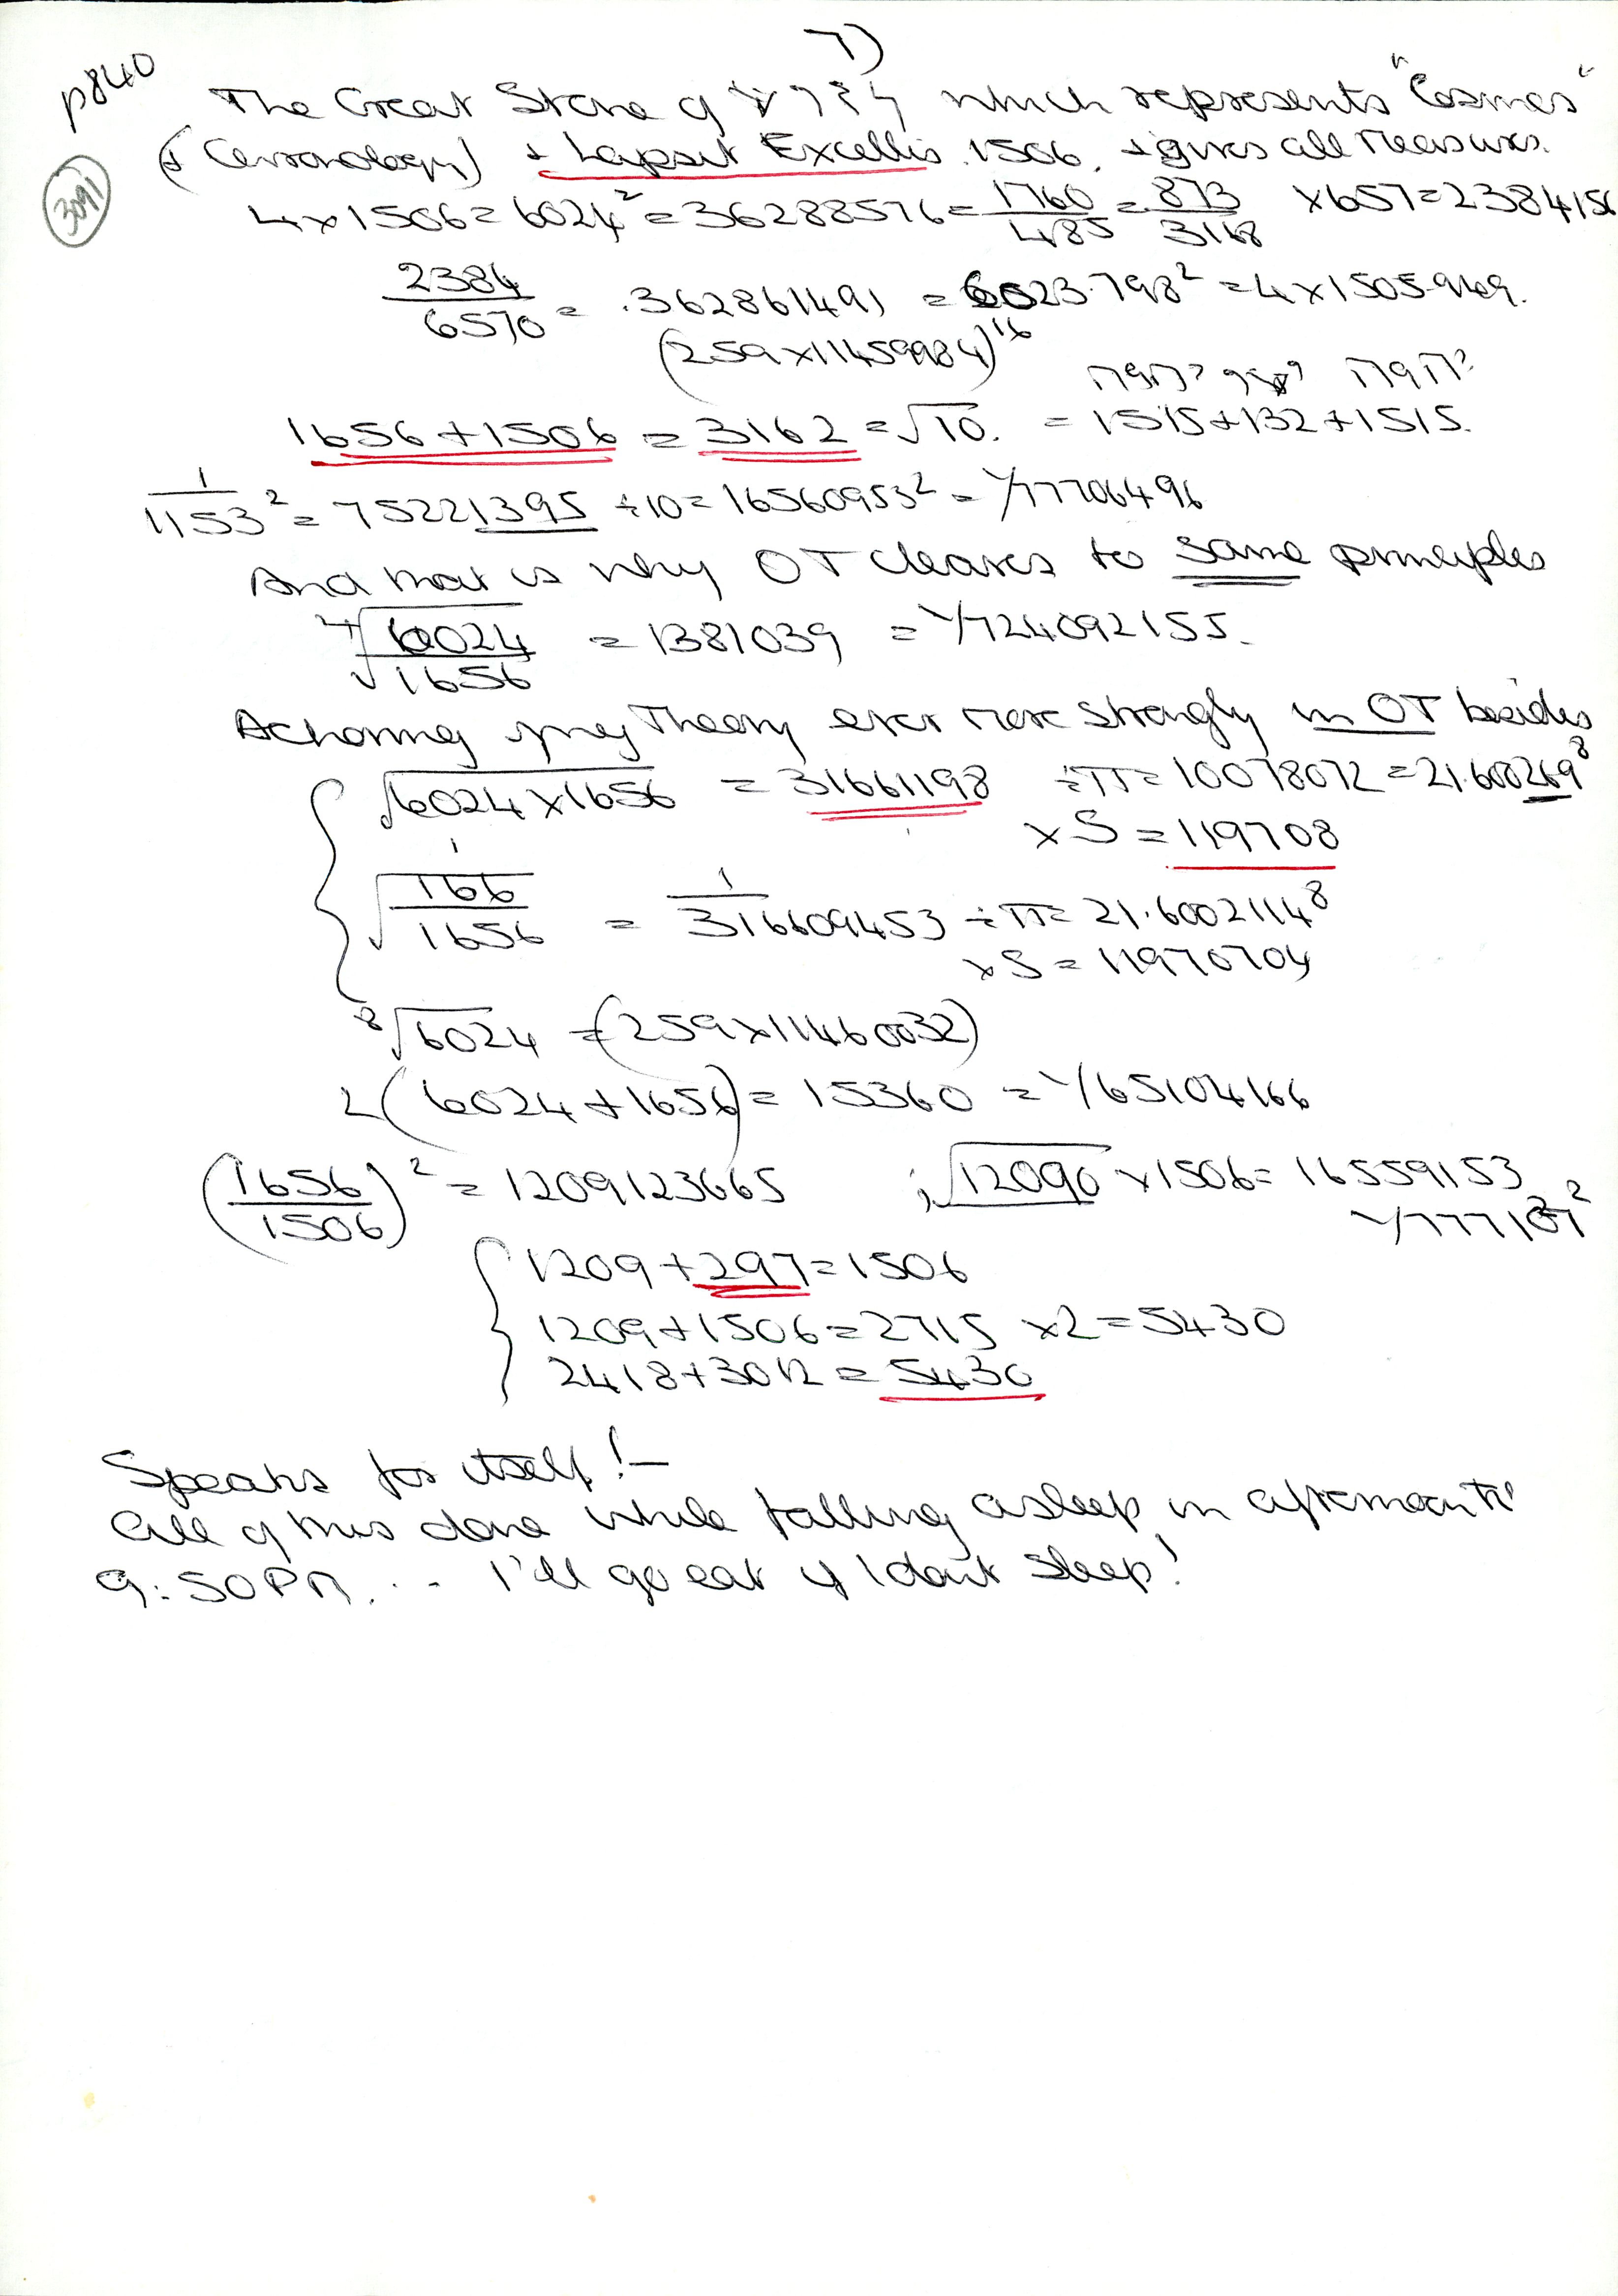 7)
p840
The Great Stone of which represents "Cosmos"
(+ Chronology) + Lapsit Excellis 1506. + gives all Measures.
3091
4x1506=6024²=36288576=1760/485=873/3168 x657=2384156
2384/6570=.362861491=6023.798²=4x1505.949.
(259x11459984)¹⁶
1656+1506=3162=√10. =1515+132+1515.
1/1153²=75221395÷10=16560953²=1/77706496
And that is why OT cleaves to same principles
⁴√6024/1656=1381039=1/724092155.
my Theory ever more strongly in OT besides
√6024x1656=31661198÷π=10078072=21.600269⁸
xS=119708
√166/1656=1/316609453÷π=21.6002114⁸
xS=11970704
⁸√6024=(259x11460032)
2(6024+1656)=15360=1/65104166
(1656/1506)²=1209123665 ; √12090x1506=16559153
1209+297=1506
1209+1506=2715 x2=5430
2418+3012=5430
Speaks for itself!-
All of this done while falling asleep in afternoon til
9:50PM... I'll go eat if I don't sleep!